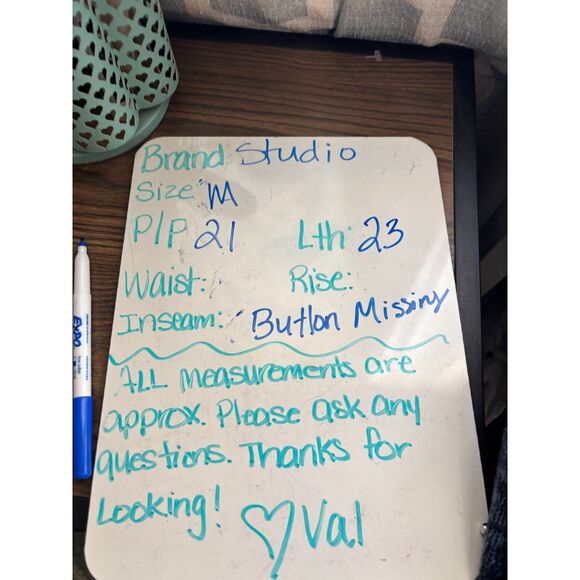 Brand Studio
Size: M
P/P 21 Lth: 23
Waist: Rise:
Inseam: Button Missing
ALL measurements are
approx. Please ask any
questions. Thanks for
Looking!
♡ Val
EXPO